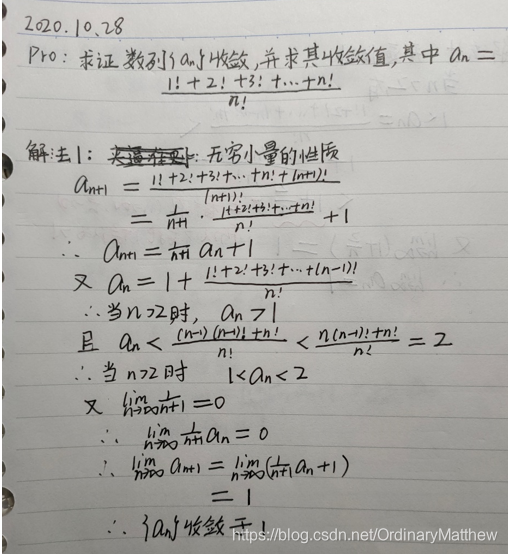 2020.10.28
Pro: 求证数列{an}收敛,并求其收敛值,其中 an =
(1!+2!+3!+…+n!)/n!
解法1: 无穷小量的性质
an+1 = (1!+2!+3!+…+n!+(n+1)!)/(n+1)!
= 1/(n+1) · (1!+2!+3!+…+n!)/n! +1
∴ an+1 = 1/(n+1) an+1
又 an = 1+ (1!+2!+3!+…+(n-1)!)/n!
∴当n>2时, an>1
且 an < ((n-1)(n-1)!+n!)/n! < (n(n-1)!+n!)/n! = 2
∴当 n>2时 1<an<2
又 lim n→∞ 1/(n+1) =0
∴ lim n→∞ 1/(n+1) an = 0
∴ lim n→∞ an+1 = lim n→∞ (1/(n+1) an +1)
= 1
∴ {an}收敛于1
https://blog.csdn.net/OrdinaryMatthew